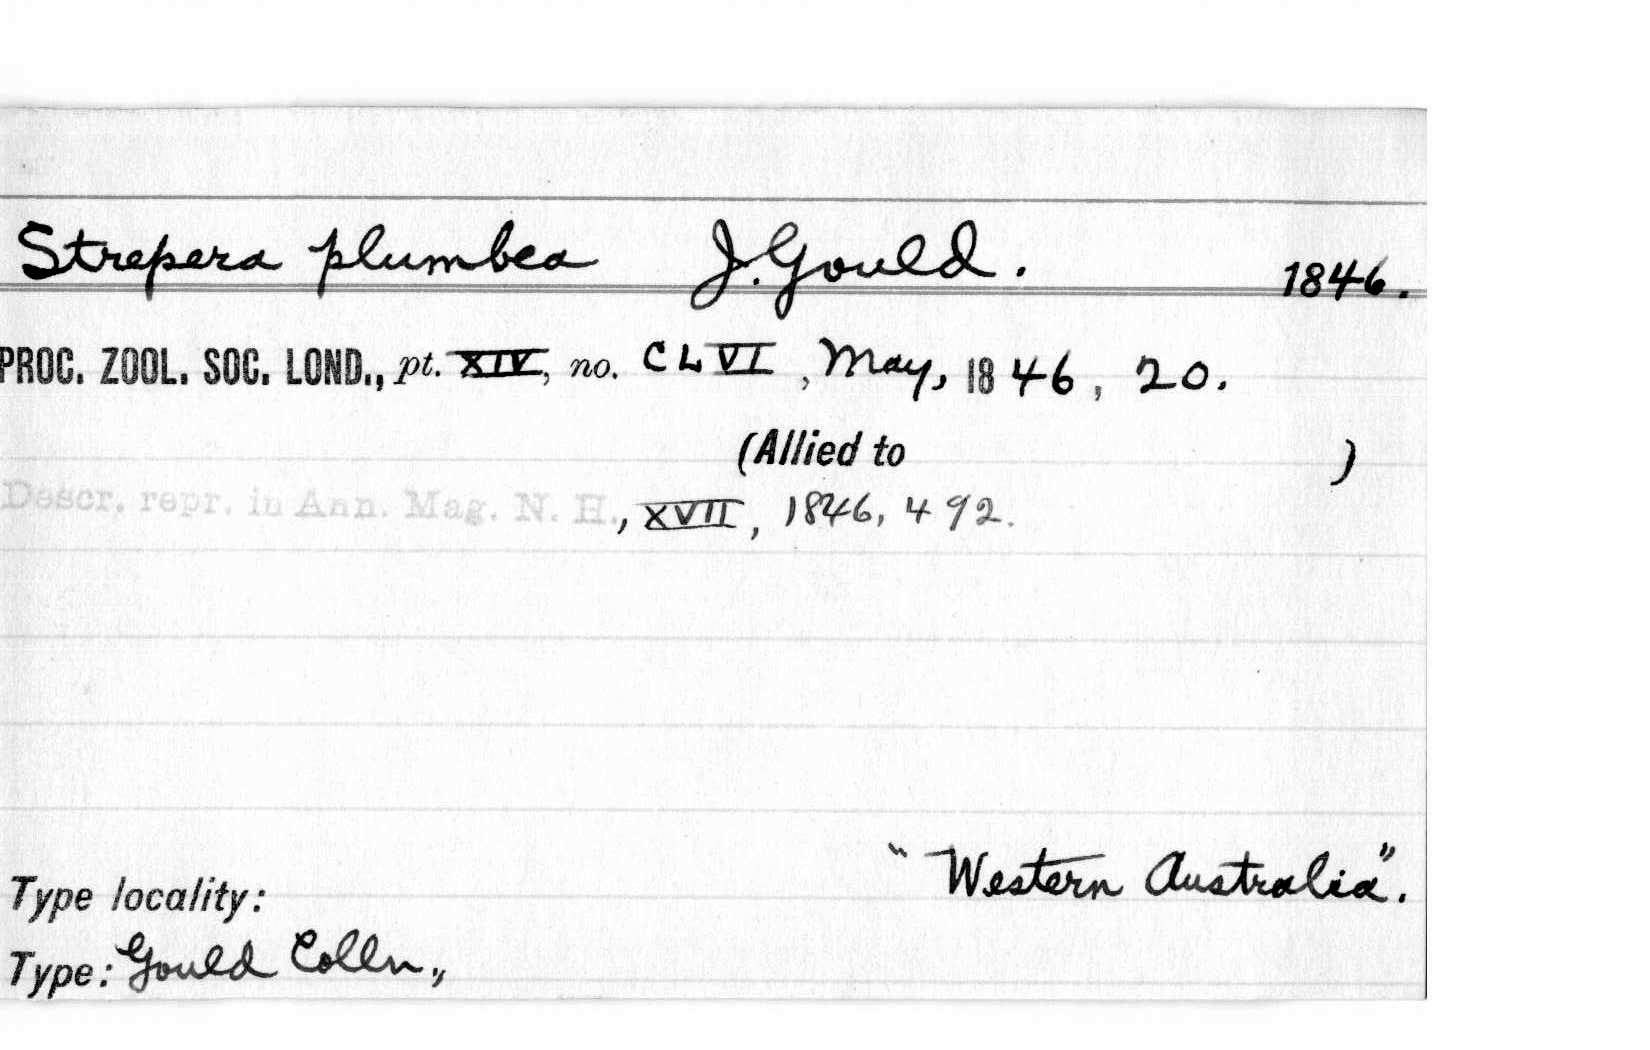 Strepera plumbea J. Gould. 1846.
PROC. ZOOL. SOC. LOND., pt. XIV, no. CLVI, May, 1846, 20.
(Allied to )
Descr. repr. in Ann. Mag. N. H., XVII, 1846, 492.
"Western Australia".
Type locality:
Type: Gould Colln.,